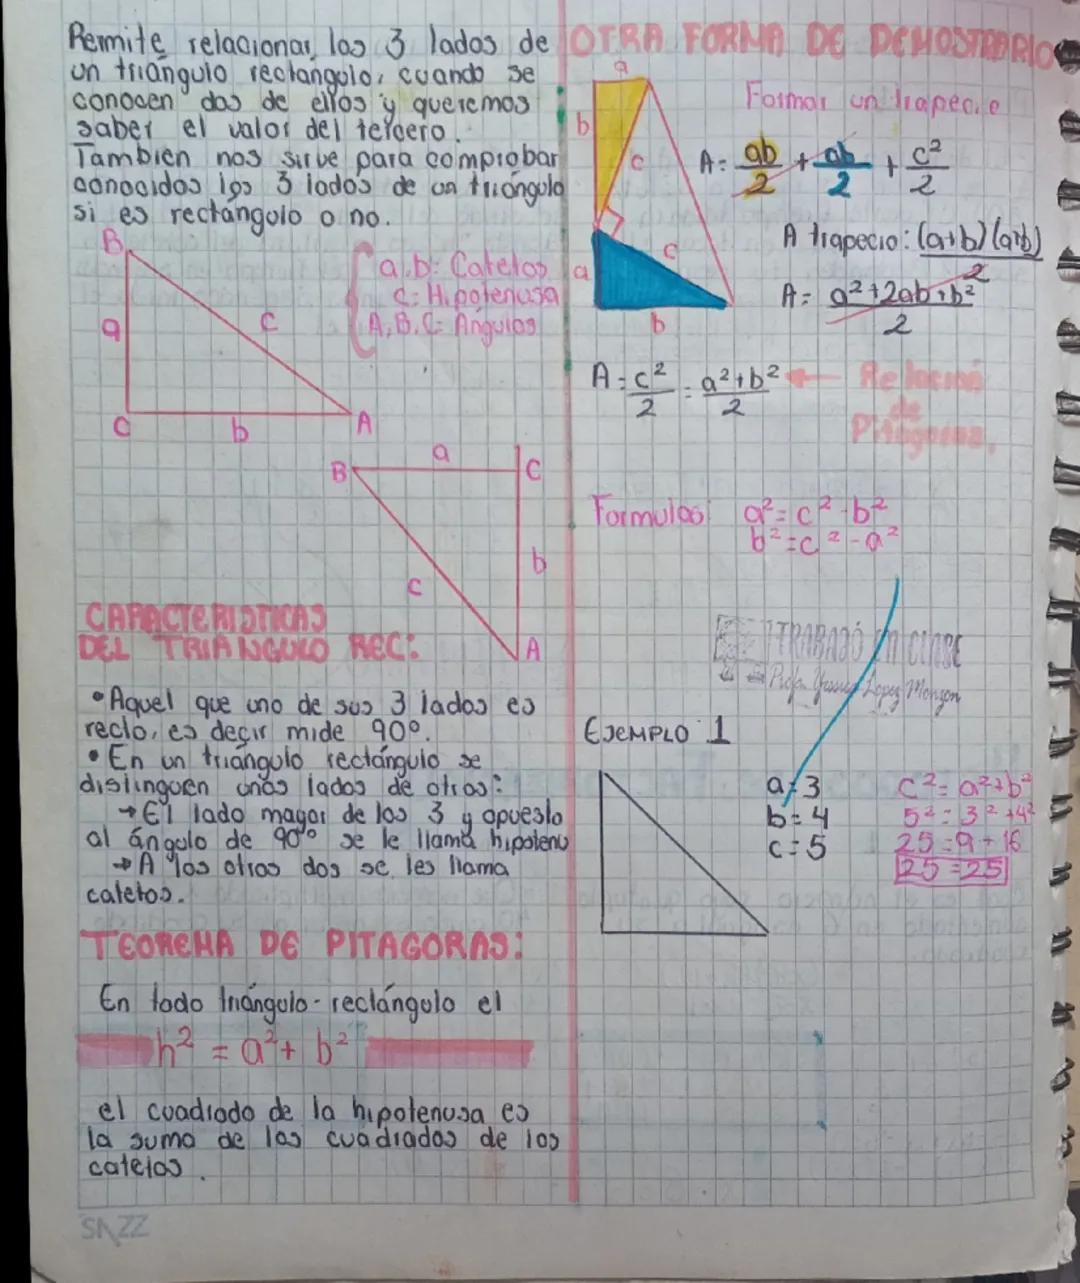 Permite relacionar los 3 lados de
un triángulo rectángulo, cuando se
conocen dos de ellos y queremos
saber el valor del tercero.
Tambien nos sirve para comprobar
conocidos los 3 lados de un triángulo
si es rectángulo o no.
B
a
c
C
b
A
a,b: Catetos
c: Hipotenusa
A,B,C: Angulos
B
a
C
b
c
A
CARACTERISTICAS
DEL TRIANGULO REC:
• Aquel que uno de sus 3 lados es
recto, es decir mide 90°.
• En un triángulo rectángulo se
distinguen unos lados de otros:
→ El lado mayor de los 3 y opuesto
al ángulo de 90° se le llama hipotenu
→ A los otros dos se les llama
catetos.
TEOREMA DE PITAGORAS:
En todo triángulo-rectángulo el
h² = a² + b²
el cuadrado de la hipotenusa es
la suma de los cuadrados de los
catetos.
SAZZ
OTRA FORMA DE DEMOSTRARLO
a
b
c
a
c
b
Formar un trapecie
A: ab/2 + ab/2 + c²/2
A trapecio: (a+b)(a+b)/2
A= a²+2ab+b²/2
A= c²/2 = a²+b²/2 ← Relacion
de
Pitagoras.
Formulas: a²=c²-b²
b²=c²-a²
TRABAJÓ EN CLASE
Profa. Lopez Monzon
EJEMPLO 1
a=3
b=4
c=5
c²=a²+b²
5²=3²+4²
25=9+16
25=25